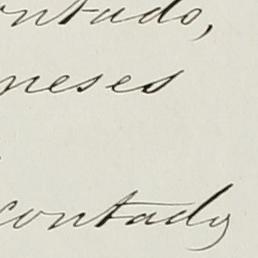 ontado,
meses
contado